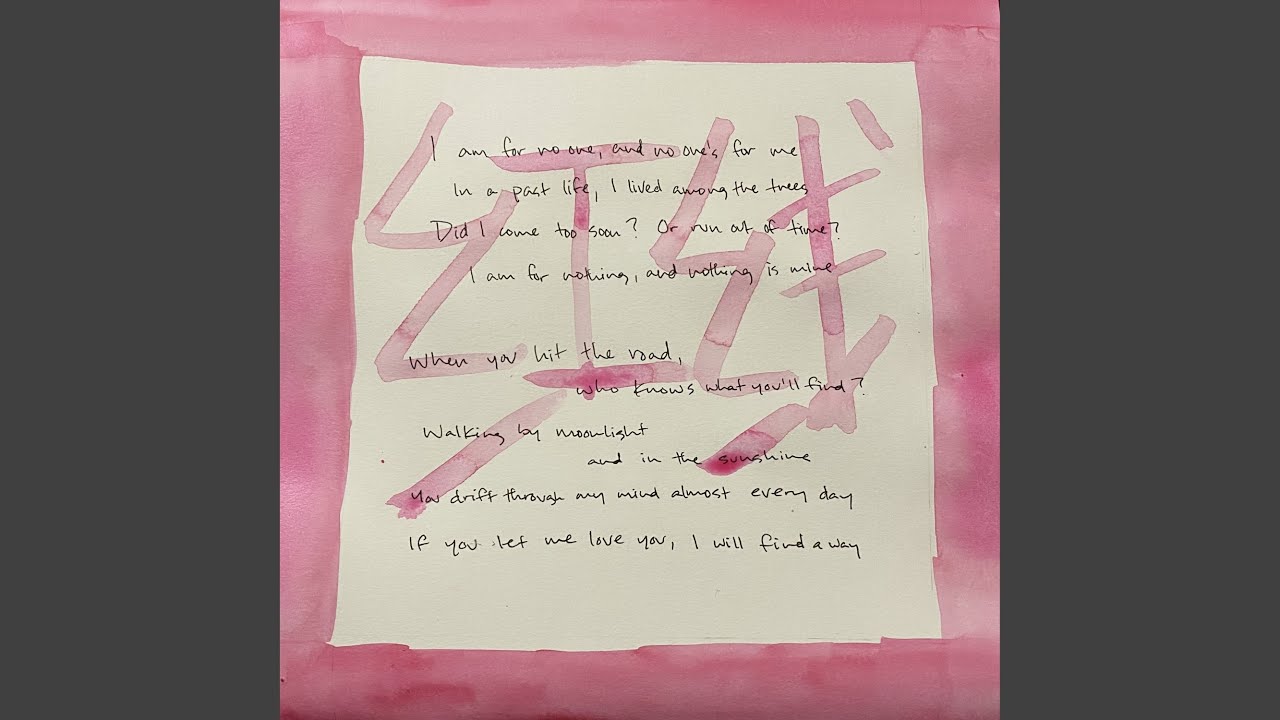 红线
I am for no one, and no one's for me
In a past life, I lived among the trees
Did I come too soon? Or run out of time?
I am for nothing, and nothing is mine
When you hit the road,
who knows what you'll find?
Walking by moonlight
and in the sunshine
You drift through my mind almost every day
If you let me love you, I will find a way